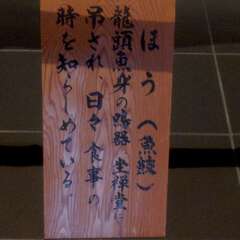 ほう（魚鼓）
龍頭魚身の鳴器 坐禅堂に
吊され、日々食事の
時を知らしめている。